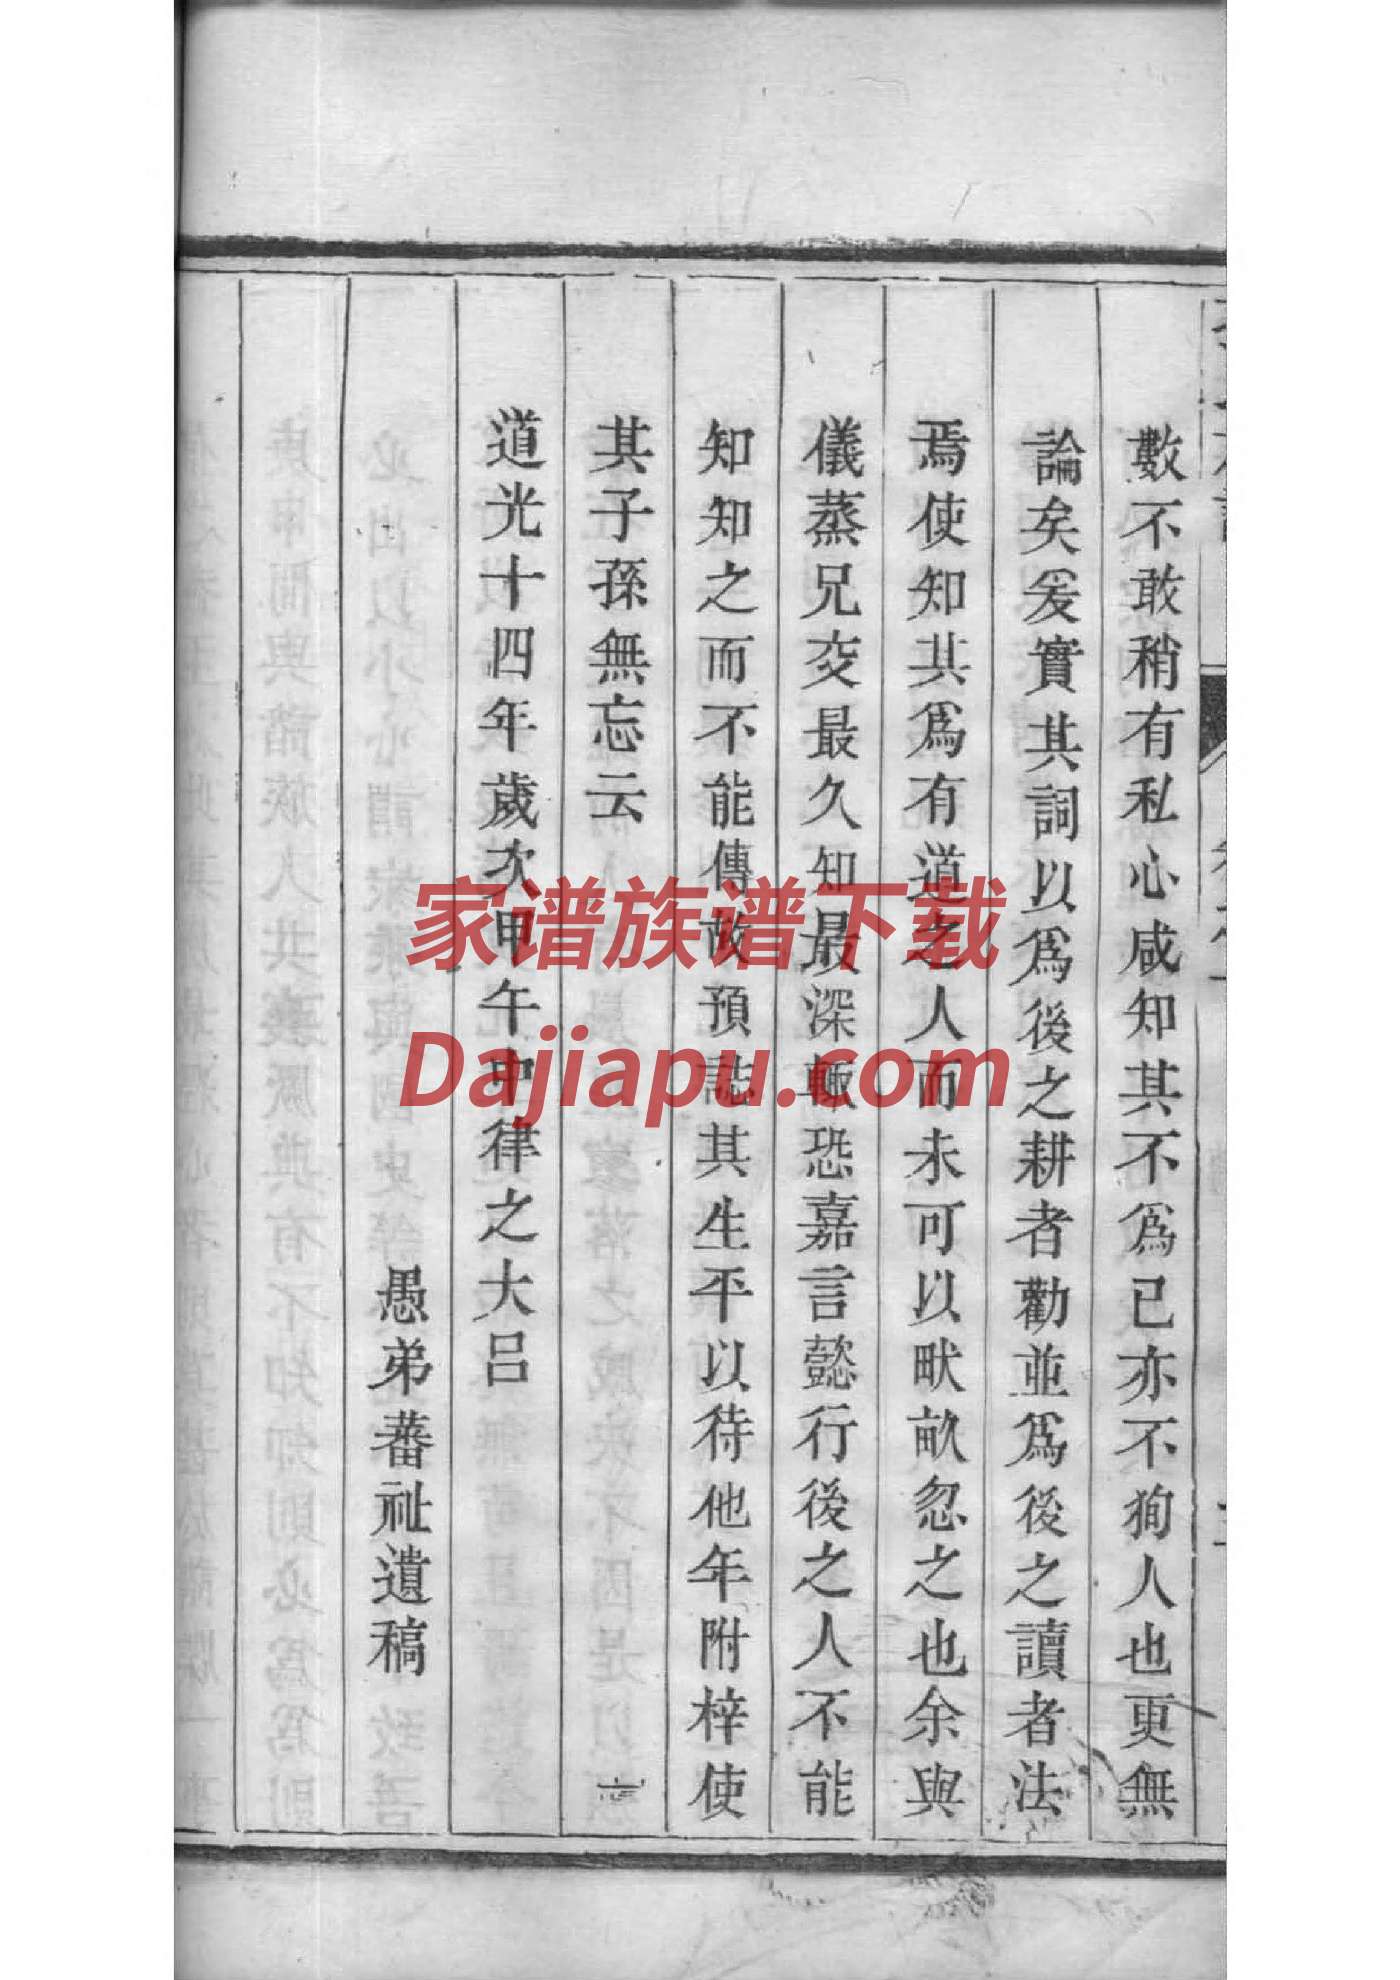 數不敢稍有私心咸知其不爲己亦不狥人也更無
論矣爰實其詞以爲後之耕者勸並爲後之讀者法
焉使知其爲有道之人而未可以畎畝忽之也余與
儀蒸兄交最久知最深輙恐嘉言懿行後之人不能
知知之而不能傳故預誌其生平以待他年附梓使
其子孫無忘云
道光十四年歲次甲午中律之大呂
愚弟蕃祉遺稿
家谱族谱下载
Dajiapu.com